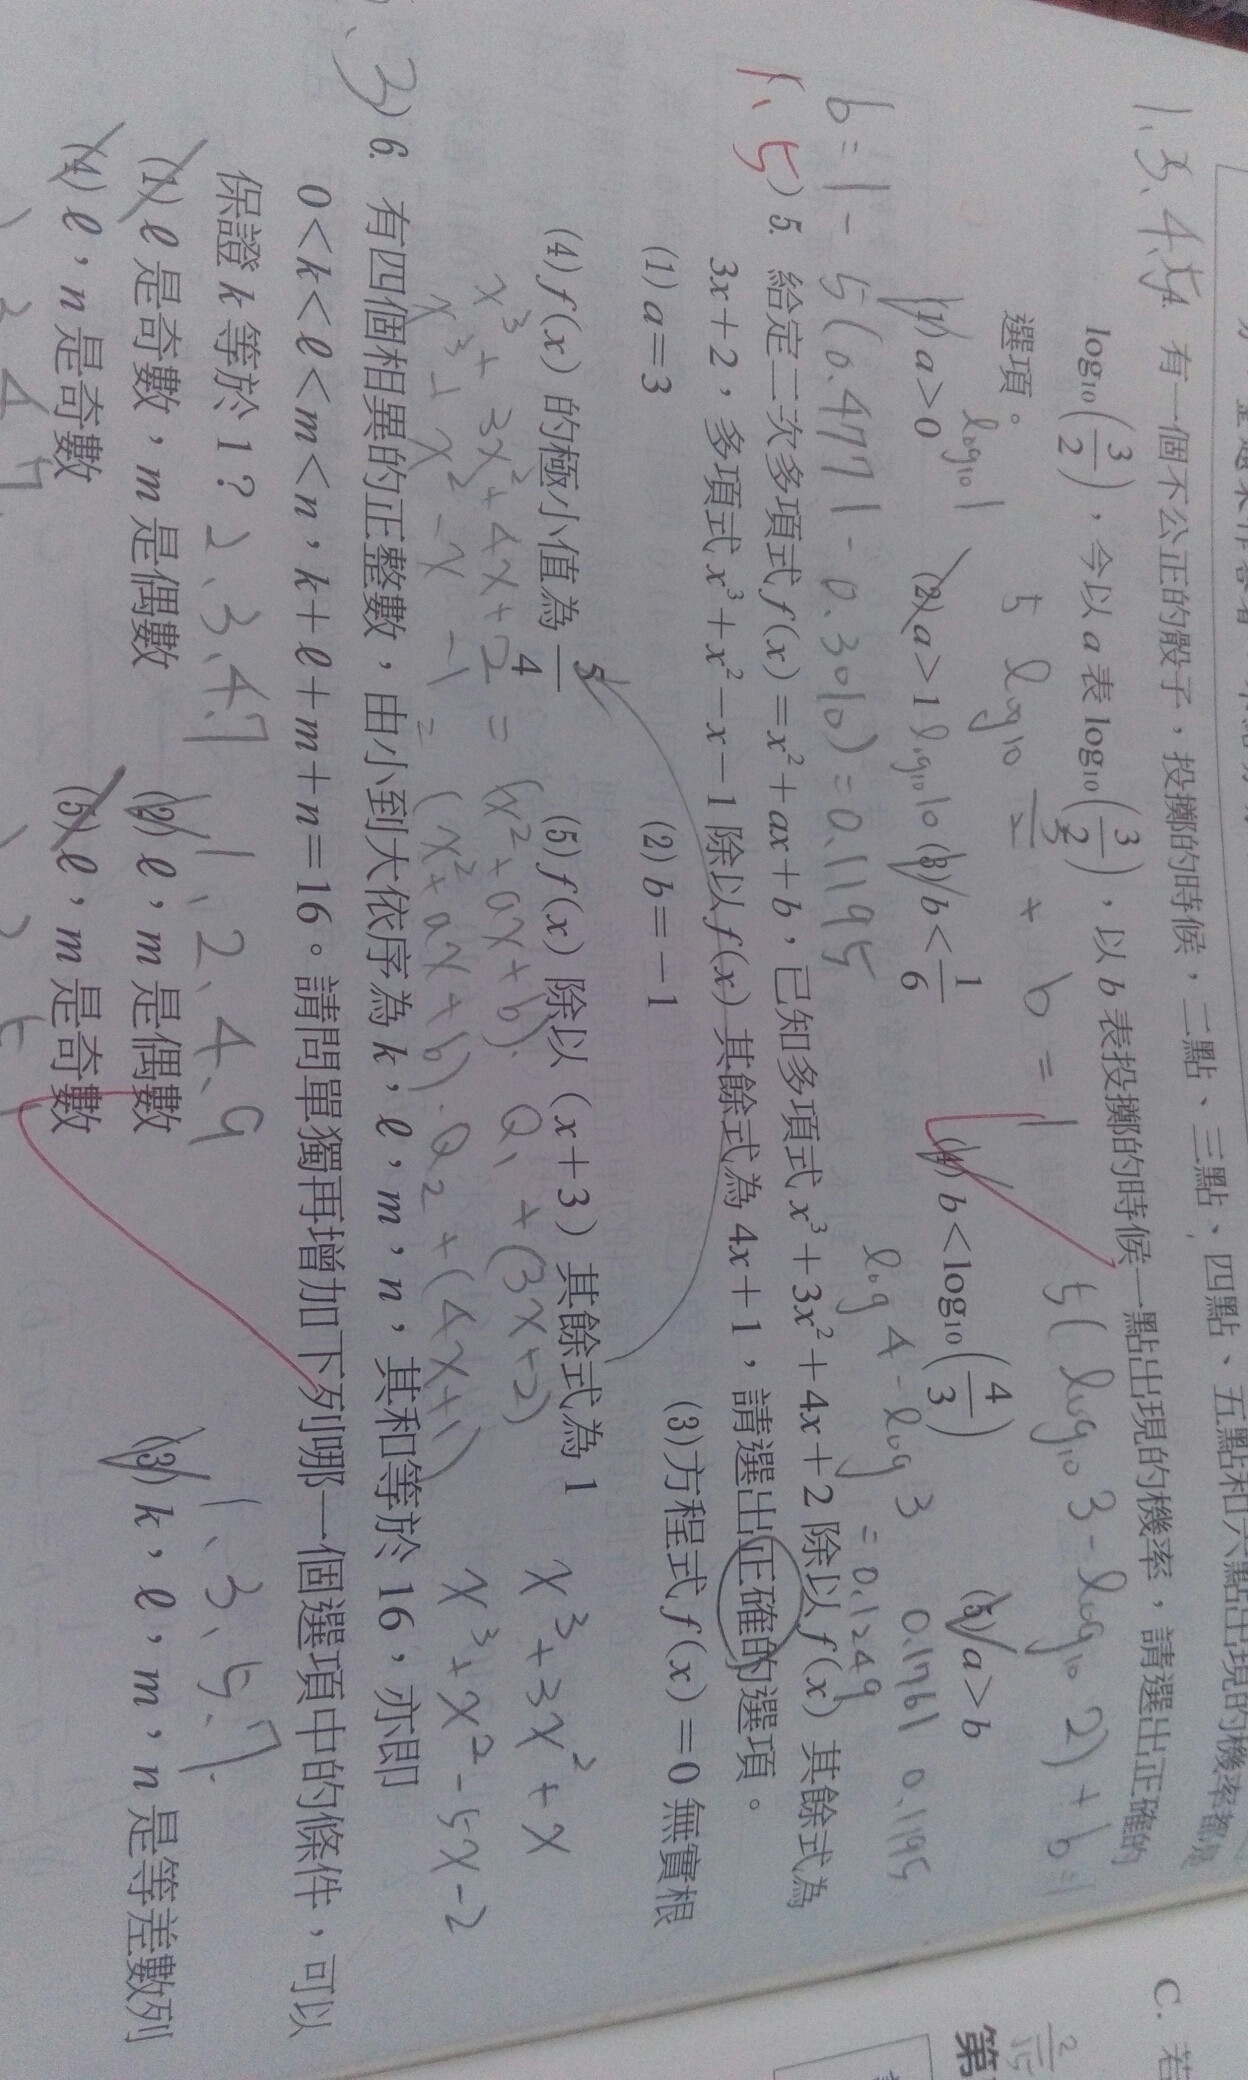 二點、三點、四點、五點和六點出現的機率都是
1、3、4、5 4. 有一個不公正的骰子，投擲的時候，
log₁₀(3/2)，今以 a 表 log₁₀(3/2)，以 b 表投擲的時候一點出現的機率，請選出正確的
選項。 5 log₁₀ 3/2 + b = 1 5(log₁₀ 3 - log₁₀ 2) + b = 1
log₁₀ 1 log₁₀ 10
(1) a>0 (2) a>1 (3) b<1/6 (4) b<log₁₀(4/3) (5) a>b
log 4 - log 3 = 0.1249 0.1761 0.1195
b = 1 - 5(0.4771 - 0.3010) = 0.1195
1、5) 5. 給定二次多項式 f(x)=x²+ax+b，已知多項式 x³+3x²+4x+2 除以 f(x) 其餘式為
3x+2，多項式 x³+x²-x-1 除以 f(x) 其餘式為 4x+1，請選出正確的選項。
(1) a=3 (2) b=-1 (3)方程式 f(x)=0 無實根
(4) f(x) 的極小值為 5/4 (5) f(x) 除以 (x+3) 其餘式為 1
x³+3x²+4x+2 = (x²+ax+b)·Q₁+(3x+2) x³+3x²+x
x³+x²-x-1 = (x²+ax+b)·Q₂+(4x+1) x³+x²-5x-2
3) 6. 有四個相異的正整數，由小到大依序為 k，ℓ，m，n，其和等於 16，亦即
0<k<ℓ<m<n，k+ℓ+m+n=16。請問單獨再增加下列哪一個選項中的條件，可以
保證 k 等於 1？ 2、3、4、7 1、2、4、9 1、3、5、7
(1) ℓ 是奇數，m 是偶數 (2) ℓ，m 是偶數 (3) k，ℓ，m，n 是等差數列
(4) ℓ，n 是奇數 (5) ℓ，m 是奇數
C. 若
第